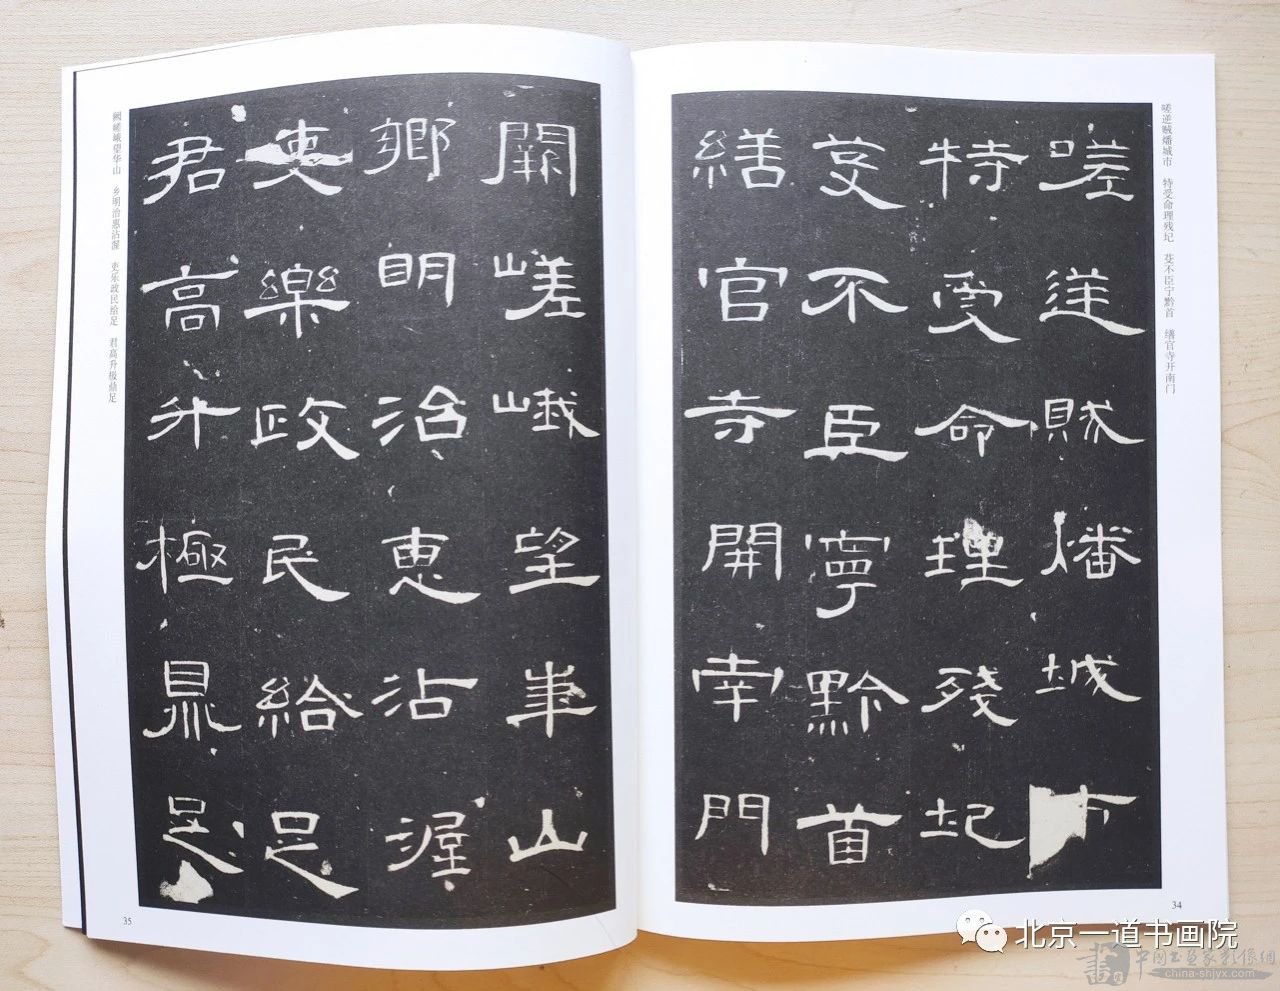 嗟逆贼燔城市　特受命理残圮　芟不臣宁黔首　缮官寺开南门
嗟逆賊燔城市
特受命理殘圮
芟不臣寧黔首
繕官寺開南門
34
阙嵯峨望华山　乡明治惠沾渥　吏乐政民给足　君高升极鼎足
闕嵯峨望華山
鄉明治惠沾渥
吏樂政民給足
君高升極鼎足
35
北京一道书画院
中国书画家影像網
china-shjyx.com